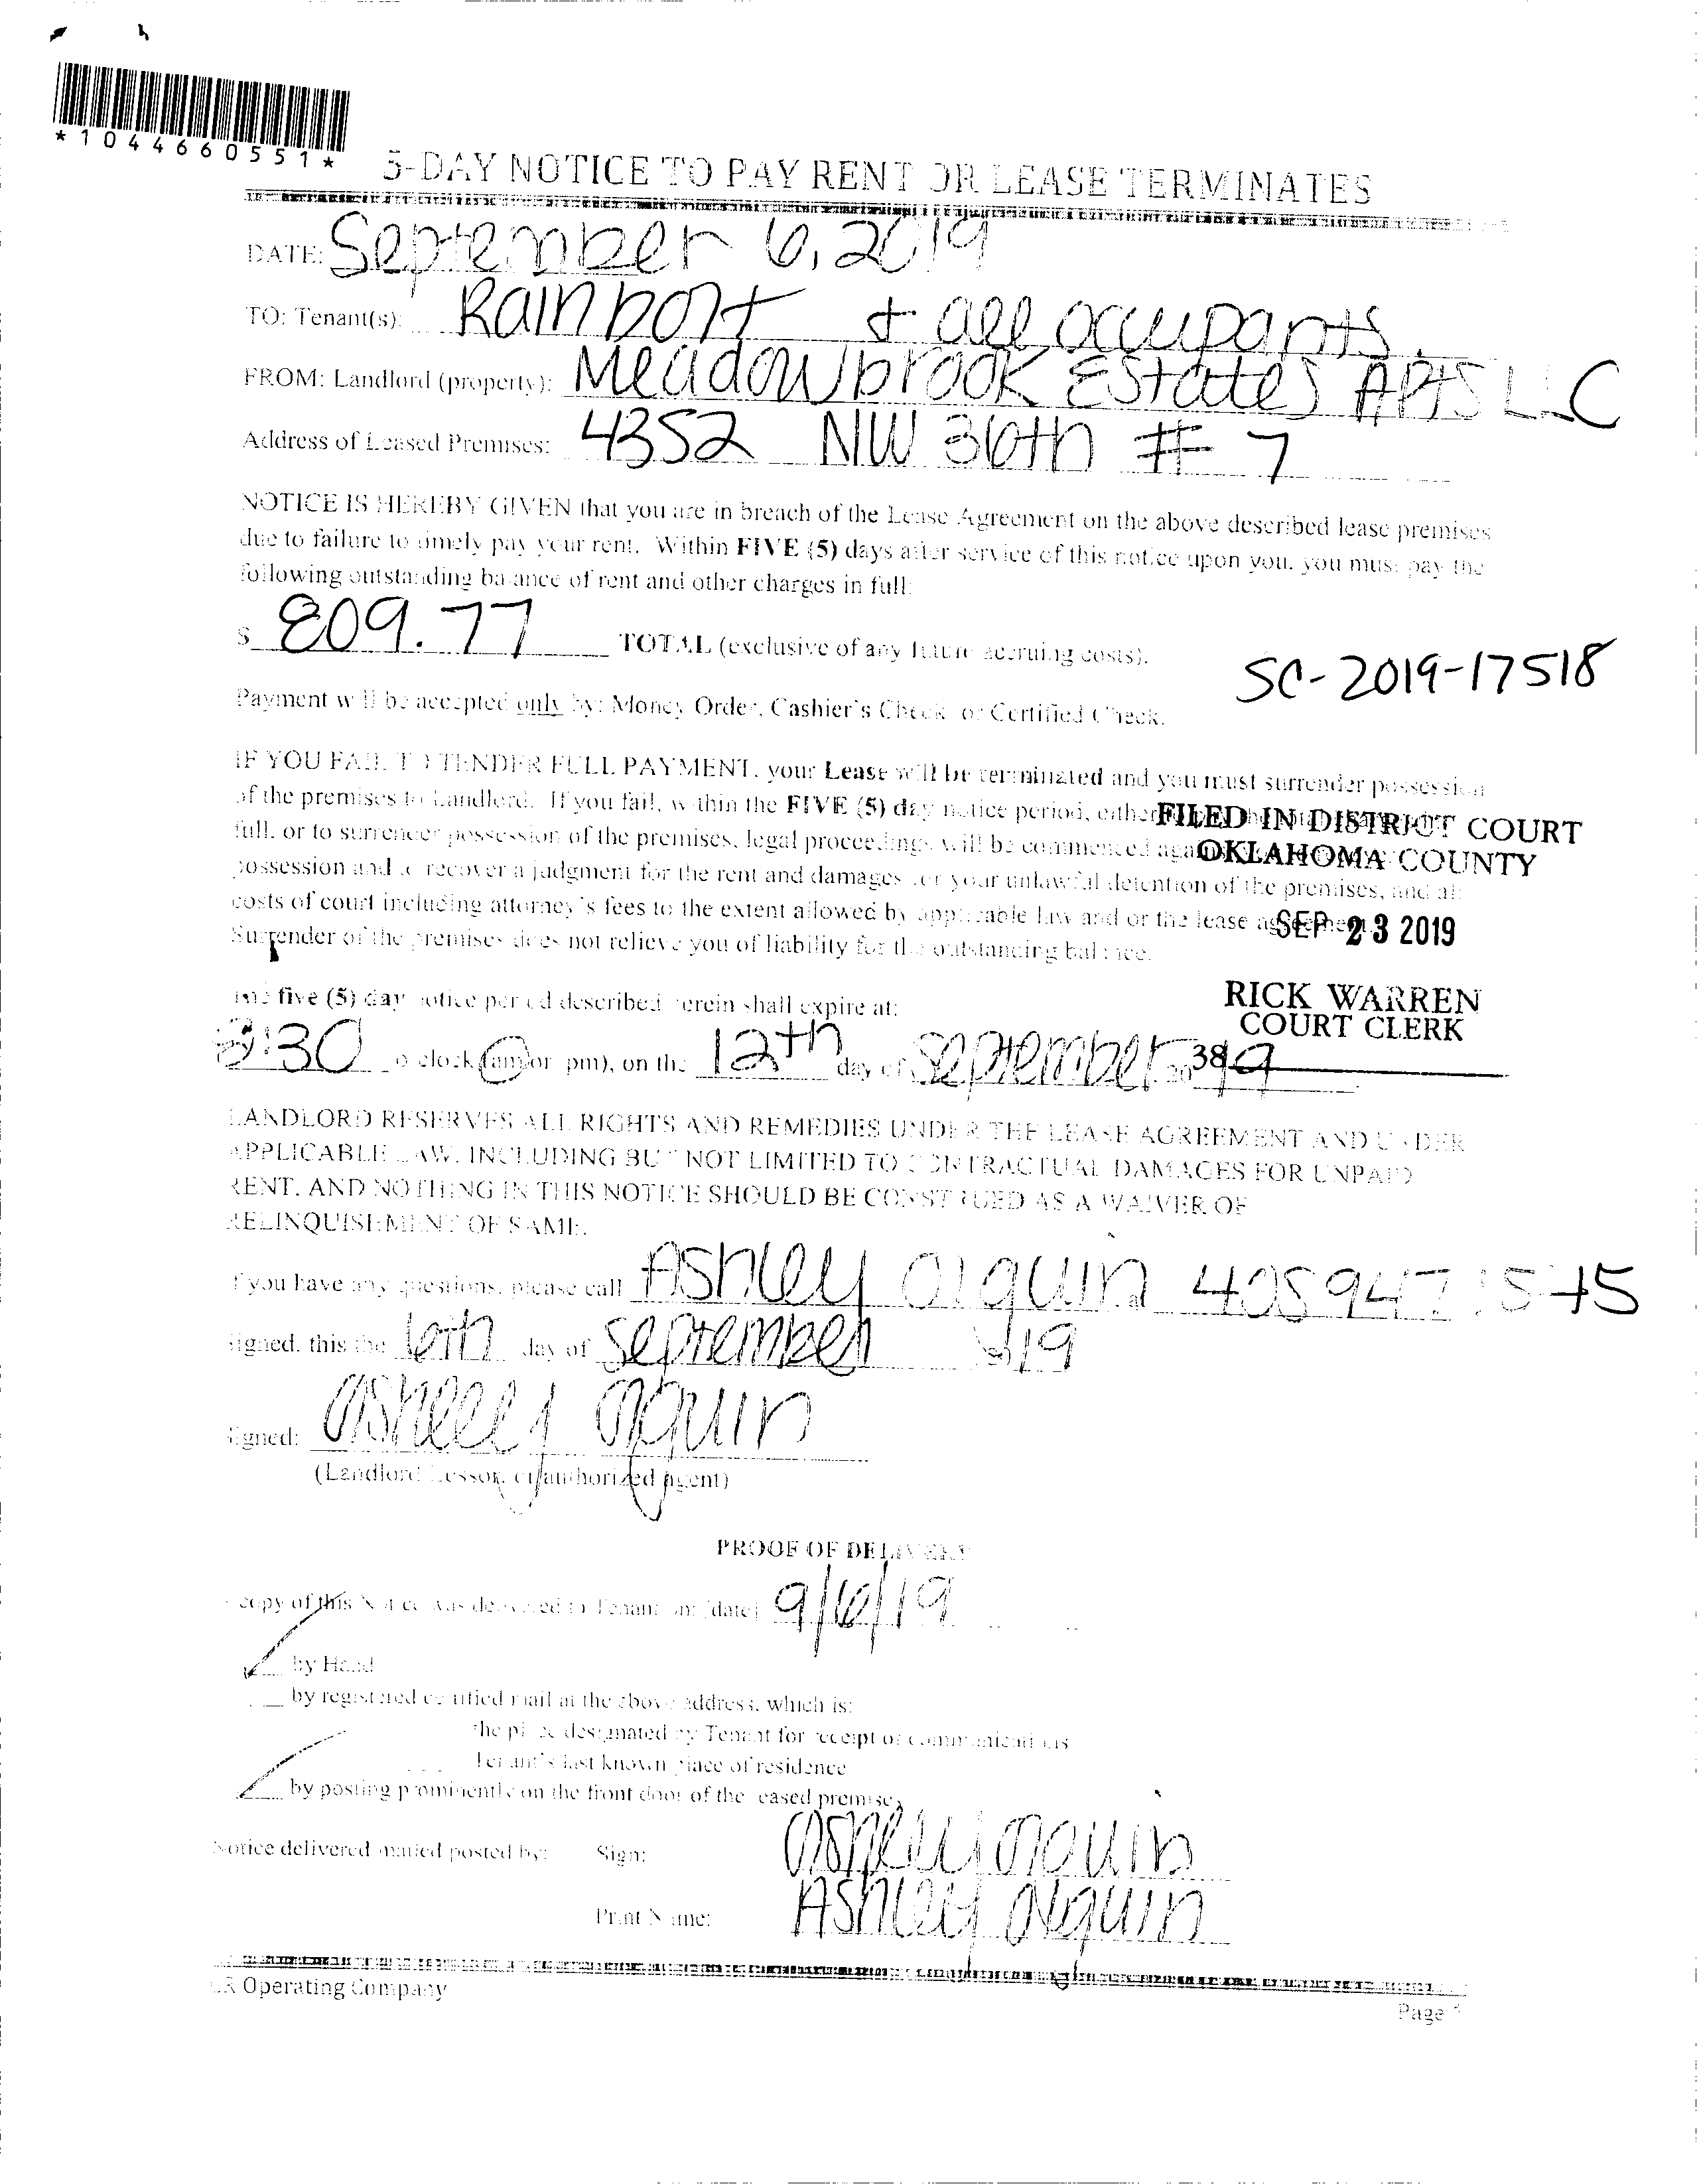 *1044660551*
5-DAY NOTICE TO PAY RENT OR LEASE TERMINATES
DATE: September 6, 2019
TO: Tenant(s): Rainbolt + all occupants.
FROM: Landlord (property): Meadowbrook Estates APTS LLC
Address of Leased Premises: 4352 NW 36th # 7
NOTICE IS HEREBY GIVEN that you are in breach of the Lease Agreement on the above described lease premises
due to failure to timely pay your rent. Within FIVE (5) days after service of this notice upon you, you must pay the
following outstanding balance of rent and other charges in full:
$ 809.77 TOTAL (exclusive of any future accruing costs).
SC-2019-17518
Payment will be accepted only by: Money Order, Cashier's Check or Certified Check.
IF YOU FAIL TO TENDER FULL PAYMENT, your Lease will be terminated and you must surrender possession
of the premises to Landlord. If you fail, within the FIVE (5) day notice period, either
FILED IN DISTRICT COURT
full, or to surrender possession of the premises, legal proceedings will be commenced
OKLAHOMA COUNTY
possession and to recover a judgment for the rent and damages for your unlawful detention of the premises, and all
costs of court including attorney's fees to the extent allowed by applicable law and or the lease agreement.
SEP 23 2019
Surrender of the premises does not relieve you of liability for the outstanding balance.
RICK WARREN
COURT CLERK
The five (5) day notice period described herein shall expire at:
:30 o'clock (am or pm), on the 12th day of September 2019
38
LANDLORD RESERVES ALL RIGHTS AND REMEDIES UNDER THE LEASE AGREEMENT AND UNDER
APPLICABLE LAW, INCLUDING BUT NOT LIMITED TO CONTRACTUAL DAMAGES FOR UNPAID
RENT, AND NOTHING IN THIS NOTICE SHOULD BE CONSTRUED AS A WAIVER OF
RELINQUISHMENT OF SAME.
If you have any questions, please call Ashley Olguin 405 947 1545
Signed, this the 6th day of September 2019
Signed: Ashley Olguin
(Landlord Lessor, or authorized agent)
PROOF OF DELIVERY
copy of this Notice was delivered to Tenant on: (date) 9/6/19
by Hand
by registered certified mail at the above address, which is:
the place designated by Tenant for receipt of communications
Tenant's last known place of residence
by posting prominently on the front door of the leased premises
Notice delivered mailed posted by: Sign: Ashley Olguin
Print Name: Ashley Olguin
Operating Company
Page